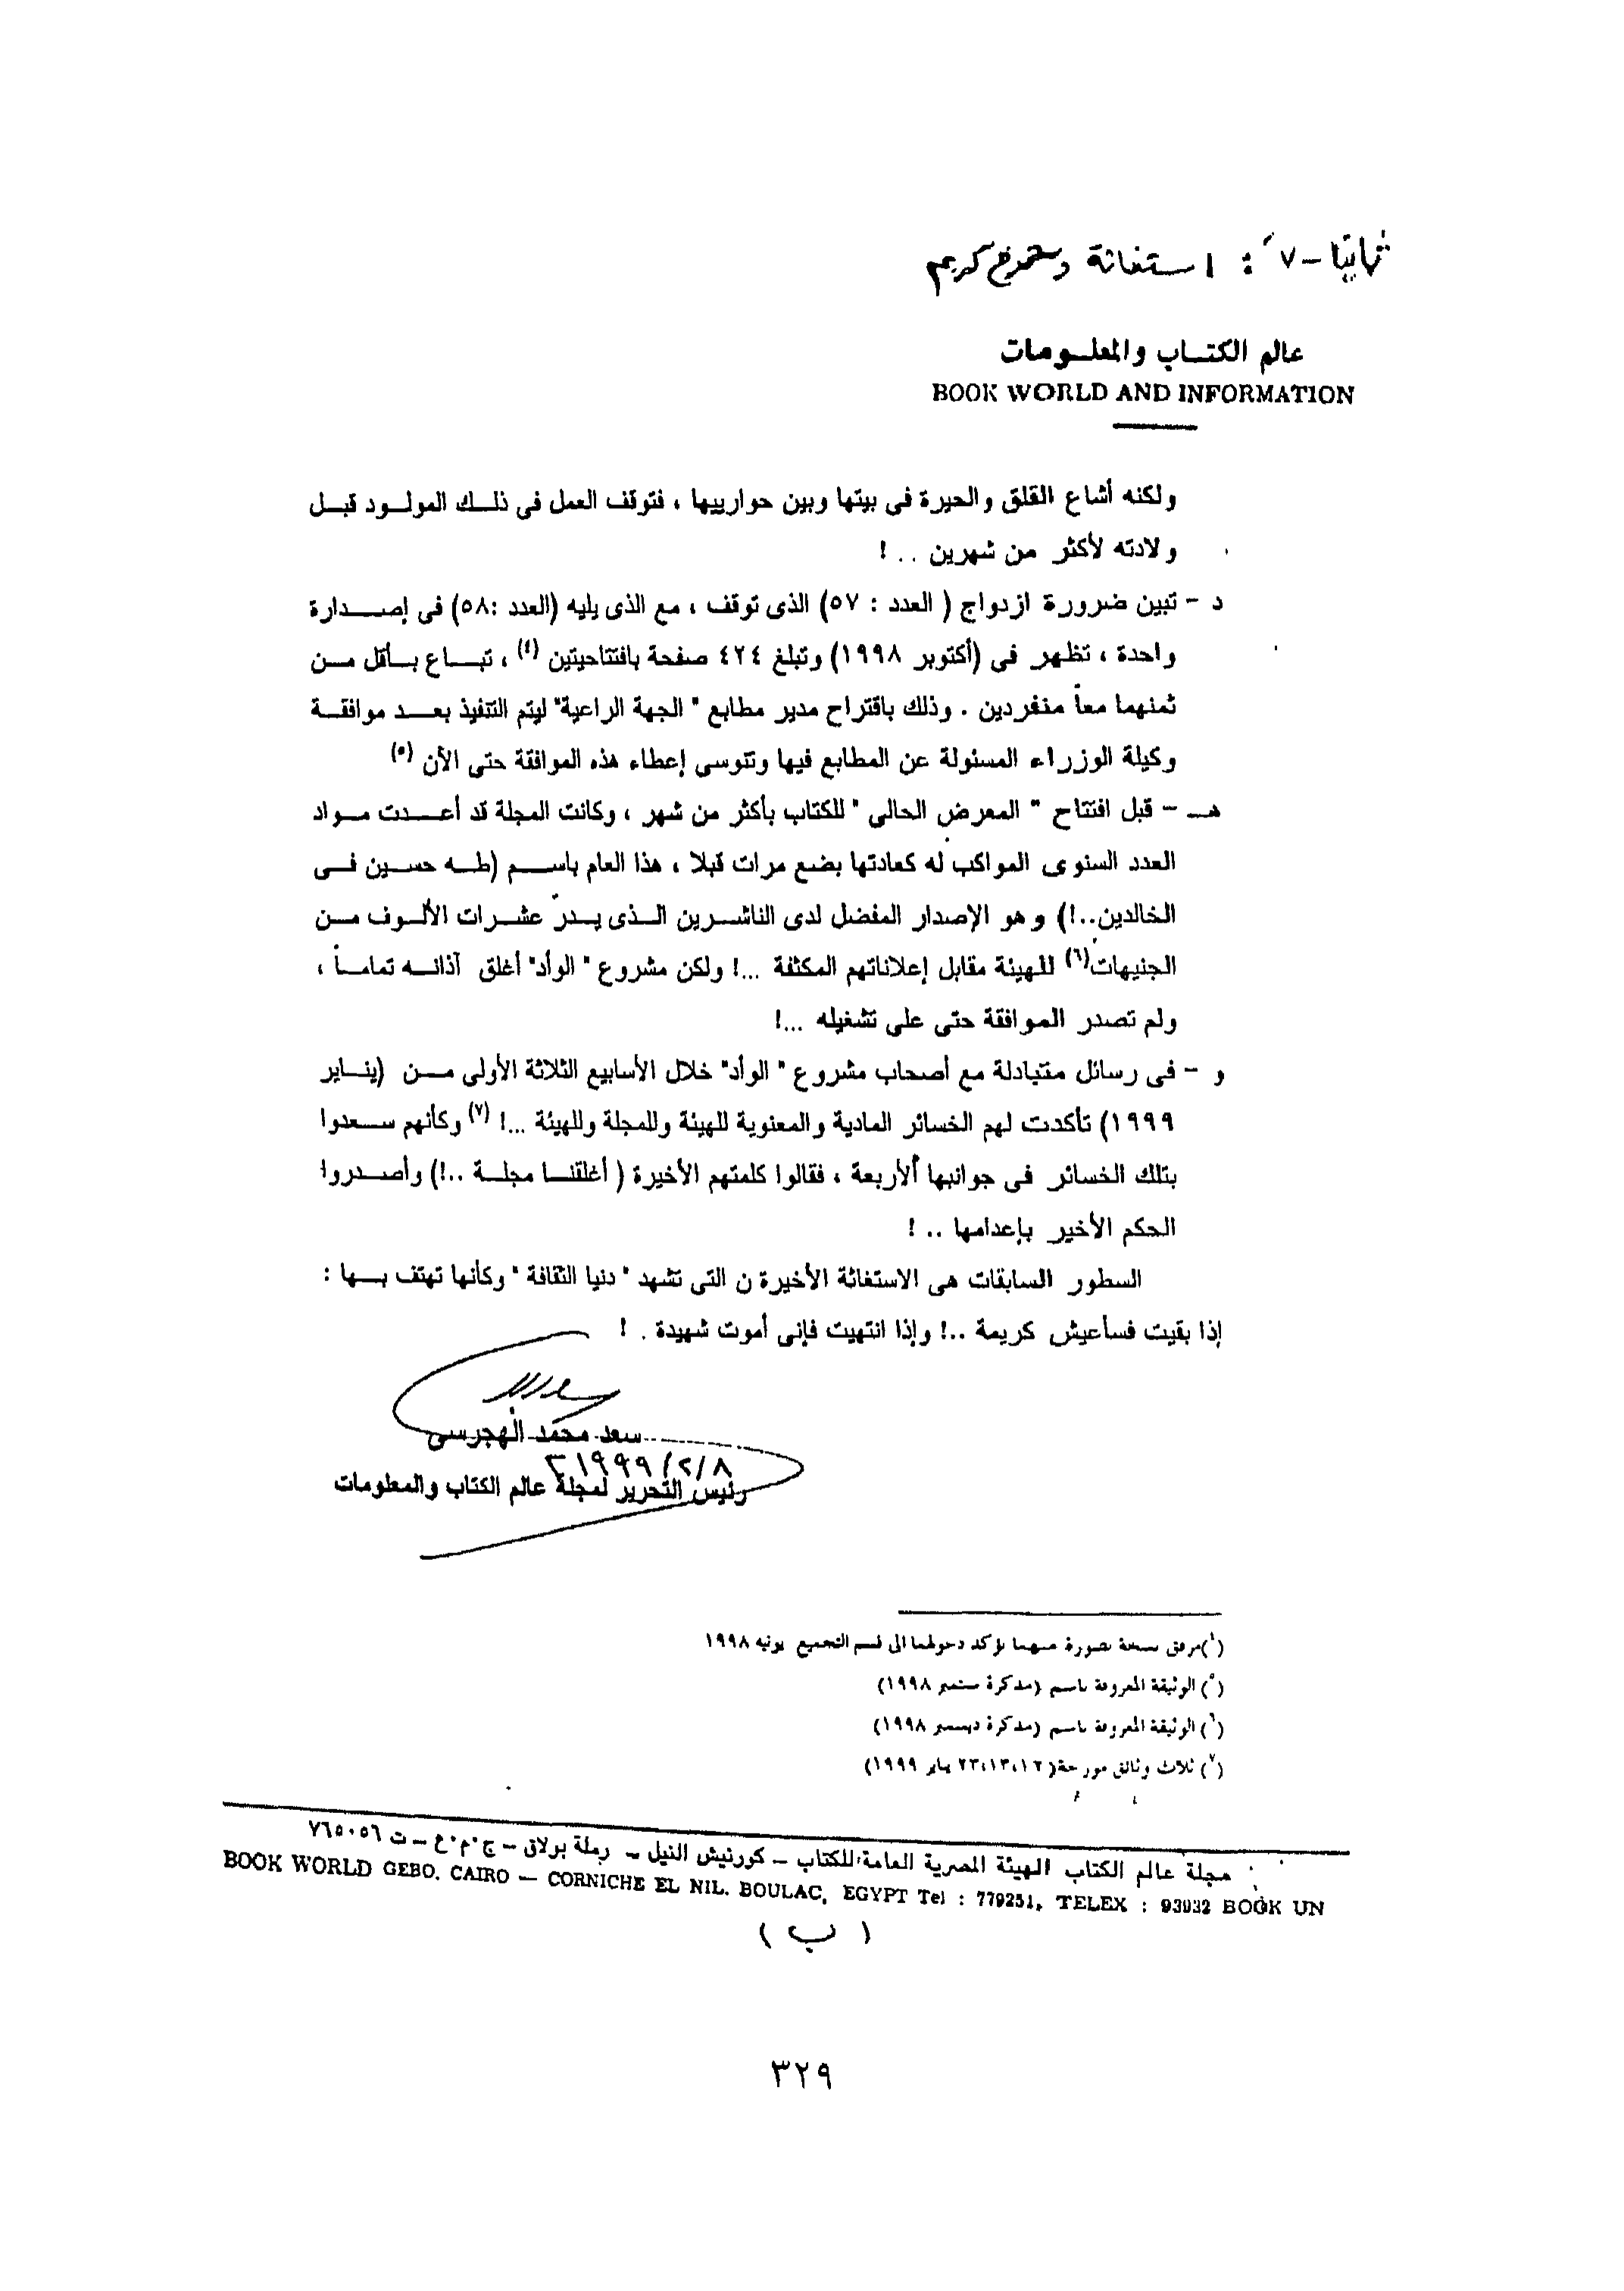 ثانيا - ٧ : استغاثة كريم
عالم الكتـاب والمعلـومات
BOOK WORLD AND INFORMATION
ولكنه أشاع القلق والحيرة فى بيتها وبين حوارييها ، فتوقف العمل فى ذلـك المولـود قبـل
ولادته لأكثر من شهرين . . !
د - تبين ضرورة ازدواج ( العدد : ٥٧) الذى توقف ، مع الذى يليه (العدد :٥٨) فى إصـدارة
واحدة ، تظهر فى (أكتوبر ١٩٩٨) وتبلغ ٤٢٤ صفحة بافتتاحيتين (٤) ، تبـاع بـأقل مـن
ثمنهما معاً منفردين . وذلك باقتراح مدير مطابع " الجهة الراعية" ليتم التنفيذ بعـد موافقـة
وكيلة الوزراء المسئولة عن المطابع فيها وتنوسى إعطاء هذه الموافقة حتى الأن (٥)
هـ - قبل افتتاح " المعرض الحالى " للكتاب بأكثر من شهر ، وكانت المجلة قد أعـدت مـواد
العدد السنوى المواكب له كعادتها بضع مرات قبلا ، هذا العام باسـم (طـه حسـين فـى
الخالدين..!) وهو الإصدار المفضل لدى الناشـرين الـذى يـدرّ عشـرات الألـوف مـن
الجنيهات(٦) للهيئة مقابل إعلاناتهم المكثفة ...! ولكن مشروع " الوأد" أغلق آذانـه تمامـاً ،
ولم تصدر الموافقة حتى على تشغيله ...!
و - فى رسائل متبادلة مع أصحاب مشروع " الوأد" خلال الأسابيع الثلاثة الأولى مـن (ينـاير
١٩٩٩) تأكدت لهم الخسائر المادية والمعنوية للهيئة وللمجلة وللهيئة ...! (٧) وكأنهم سـعدوا
بتلك الخسائر فى جوانبها ألأربعة ، فقالوا كلمتهم الأخيرة ( أغلقنـا مجلـة ..!) وأصـدروا
الحكم الأخير بإعدامها .. !
السطور السابقات هى الاستغاثة الأخيرة ن التى تشهد " دنيا الثقافة " وكأنها تهتف بـها :
إذا بقيت فسأعيش كريمة ..! وإذا انتهيت فإنى أموت شهيدة . !
سعد محمد الهجرسى
١٩٩٩/٢/٨
رئيس التحرير لمجلة عالم الكتاب والمعلومات
(٤)مرفق نسخة مصورة منهما يؤكد دخولهما الى قسم التجميع يونيه ١٩٩٨
(٥) الوثيقة المعروفة باسم (مذكرة سبتمبر ١٩٩٨)
(٦) الوثيقة المعروفة باسم (مذكرة ديسمبر ١٩٩٨)
(٧) ثلاث وثائق مورخة( ١٢،١٣،٢٣ يناير ١٩٩٩)
مجلة عالم الكتاب الهيئة المصرية العامة للكتاب - كورنيش النيل - رملة بولاق - ج.م.ع - ت ٧٦٥٠٥٦
BOOK WORLD GEBO. CAIRO — CORNICHE EL NIL. BOULAC, EGYPT Tel : 779251, TELEX : 93932 BOOK UN
( ب )
٣٢٩